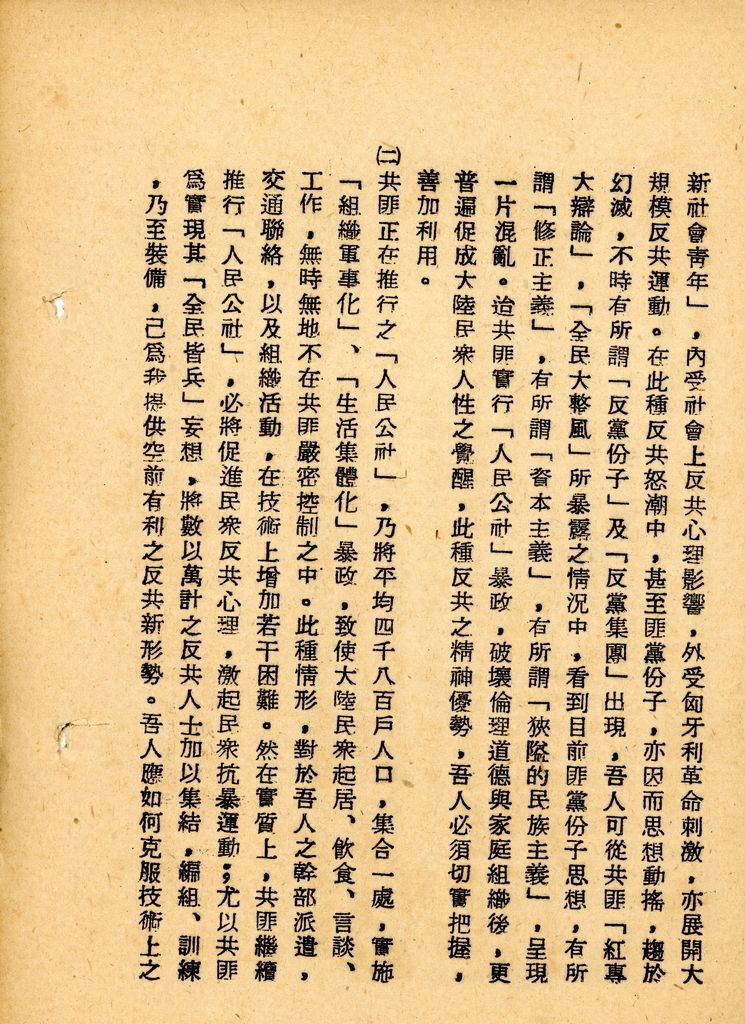 新社會青年」，內受社會上反共心理影響，外受匈牙利革命刺激，亦展開大
規模反共運動。在此種反共怒潮中，甚至匪黨份子，亦因而思想動搖，趨於
幻滅，不時有所謂「反黨份子」及「反黨集團」出現，吾人可從共匪「紅專
大辯論」，「全民大整風」所暴露之情況中，看到目前匪黨份子思想，有所
謂「修正主義」，有所謂「資本主義」，有所謂「狹隘的民族主義」，呈現
一片混亂。迨共匪實行「人民公社」暴政，破壞倫理道德與家庭組織後，更
普遍促成大陸民衆人性之覺醒，此種反共之精神優勢，吾人必須切實把握，
善加利用。
㈡共匪正在推行之「人民公社」，乃將平均四千八百戶人口，集合一處，實施
「組織軍事化」、「生活集體化」暴政，致使大陸民衆起居、飲食、言談、
工作，無時無地不在共匪嚴密控制之中。此種情形，對於吾人之幹部派遣，
交通聯絡，以及組織活動，在技術上增加若干困難。然在實質上，共匪繼續
推行「人民公社」，必將促進民衆反共心理，激起民衆抗暴運動，尤以共匪
爲實現其「全民皆兵」妄想，將數以萬計之反共人士加以集結，編組、訓練
，乃至裝備，已爲我提供空前有利之反共新形勢。吾人應如何克服技術上之